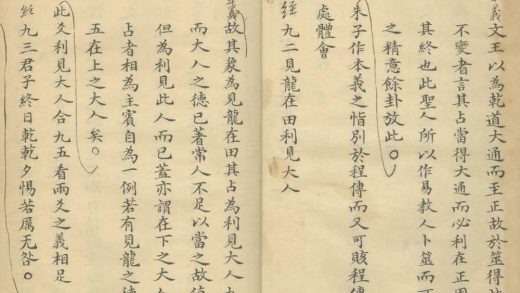 義文王以為乾道大通而至正故於筮得此
不變者言其占當得大通而必利在正固
其終也此聖人所以作易教人卜筮而
之精意餘卦放此
朱子作本義之恉別於程傳而又可賅程傳
處體會
經九二見龍在田利見大人
義故其象為見龍在田其占為利見大人九
而大人之德已著常人不足以當之故值
但為利見此人而已蓋亦謂在下之大人
占者相為主賓自為一例若有見龍之德
五在上之大人矣
此爻利見大人合九五看兩爻之義相足
經九三君子終日乾乾夕惕若厲无咎